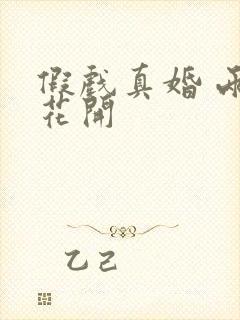 假戲真婚 
花開
乙己